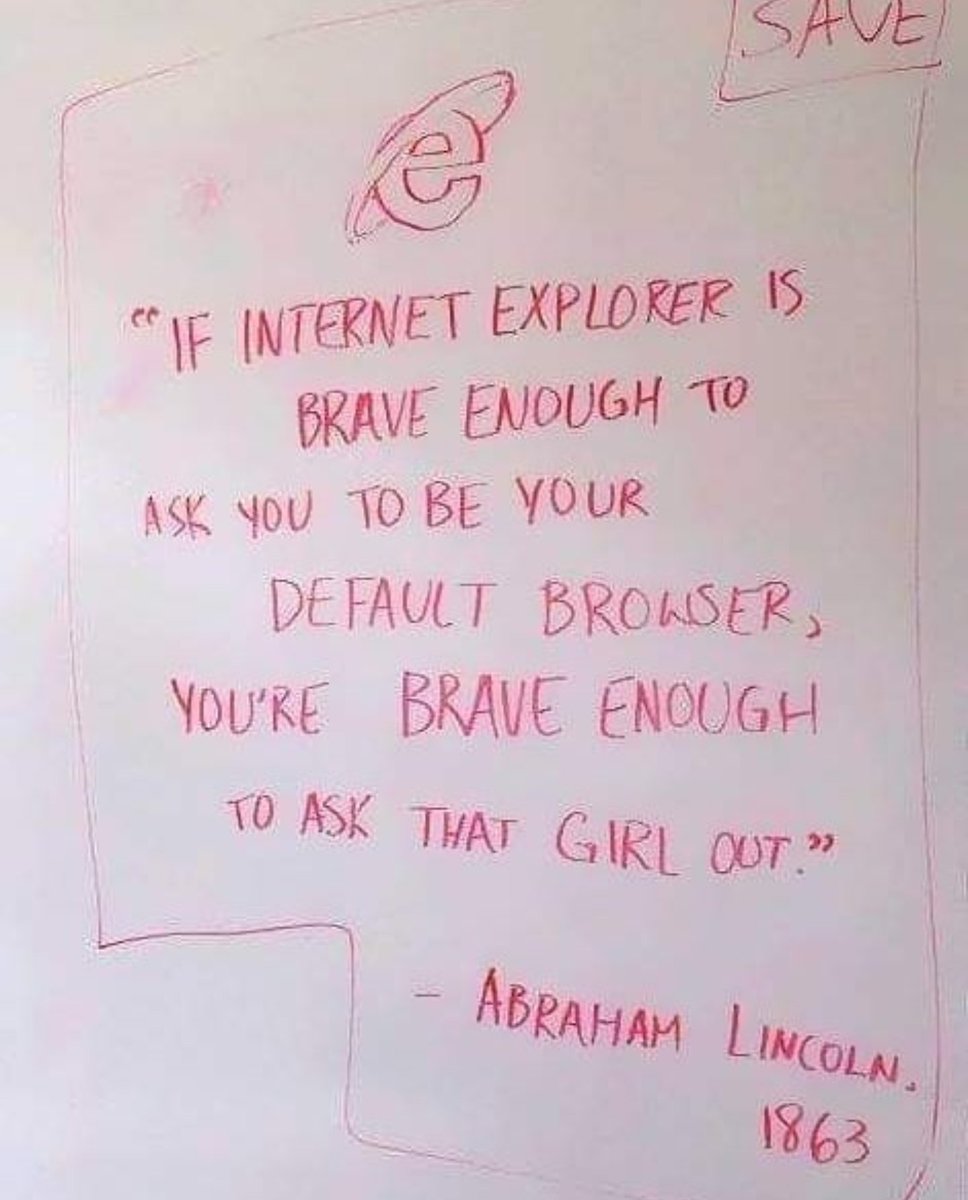 SAVE
e
“IF INTERNET EXPLORER IS
BRAVE ENOUGH TO
ASK YOU TO BE YOUR
DEFAULT BROWSER,
YOU'RE BRAVE ENOUGH
TO ASK THAT GIRL OUT.”
- ABRAHAM LINCOLN.
1863